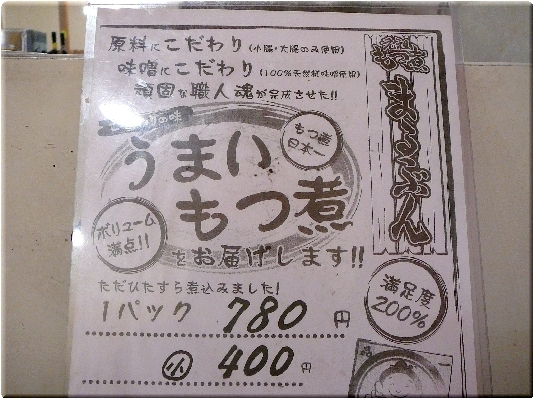 原料にこだわり(小腸・大腸のみ使用)
味噌にこだわり(100%天然糀味噌使用)
頑固な職人魂が完成させた!!
の味
うまい
もつ煮
もつ煮
日本一
ボリューム
満点!!
をお届けします!!
ただひたすら煮込みました!
1パック 780円
小 400円
満足度
200%